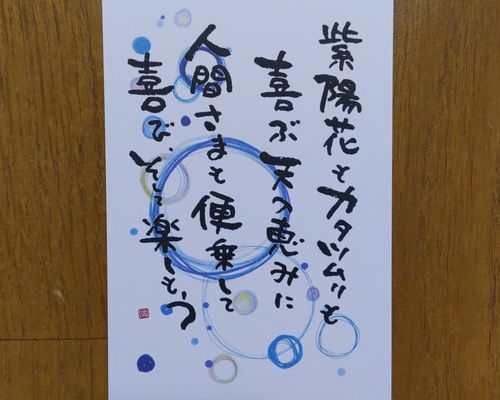 紫陽花もカタツムリも
喜ぶ天の恵みに
人間さまも便乗して
喜び、そして楽しもう